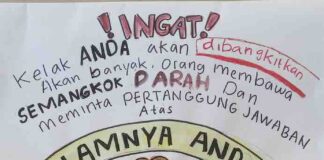 !INGAT!
Kelak ANDA akan dibangkitkan
Akan banyak, Orang membawa
SEMANGKOK DARAH Dan
meminta PERTANGGUNG JAWABAN
Atas
LAMNYA AND